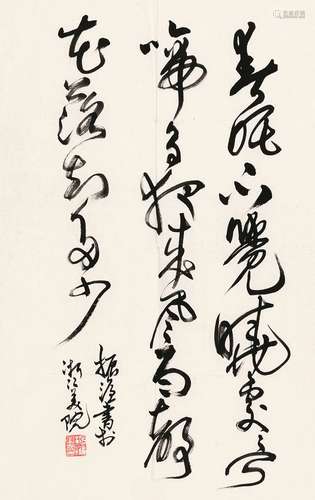 春眠不覺曉處々聞
啼鳥夜來風雨聲
花落知多少
振濂書於
浙江美院